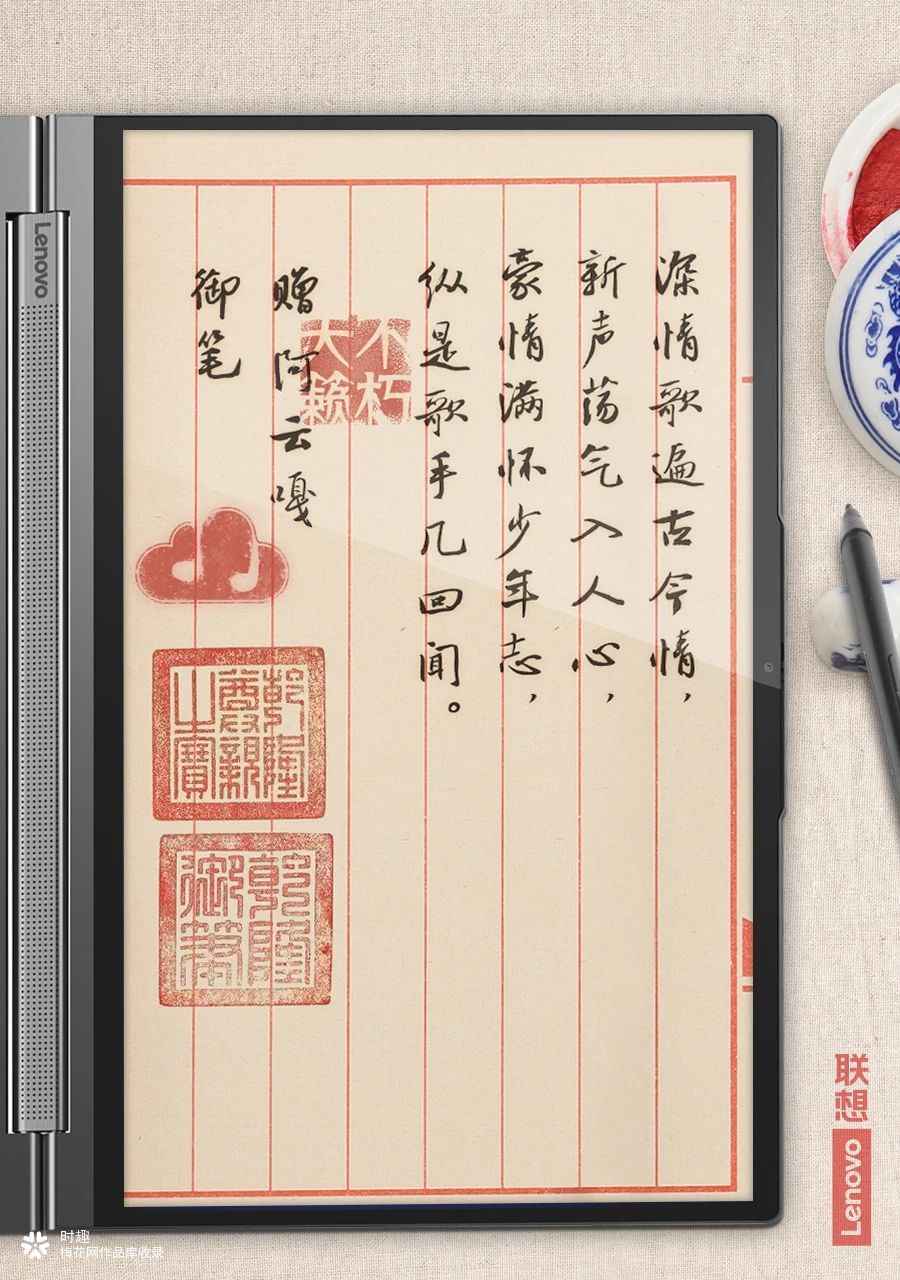 深情歌遍古今情，
新声荡气入人心，
豪情满怀少年志，
纵是歌手几回闻。
不朽
天籁
赠阿云嘎
御笔
乾隆
敕亲
之宝
乾隆
御笔
Lenovo
联想
Lenovo
时趣
梅花网作品库收录